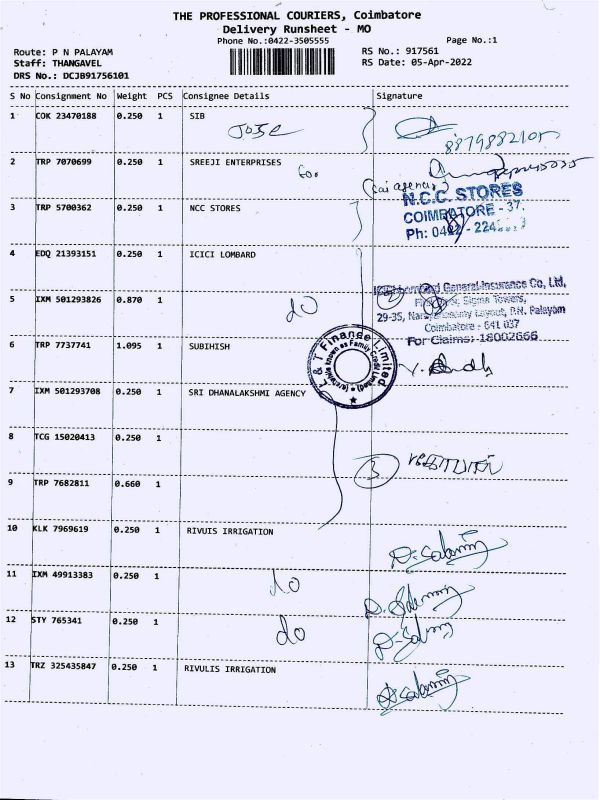 THE PROFESSIONAL COURIERS, Coimbatore
Delivery Runsheet - MO
Phone No.:0422-3505555 Page No.:1
Route: P N PALAYAM RS No.: 917561
Staff: THANGAVEL RS Date: 05-Apr-2022
DRS No.: DCJB91756101
S No Consignment No Weight PCS Consignee Details Signature
1 COK 23470188 0.250 1 SIB
Jose
8879882105
2 TRP 7070699 0.250 1 SREEJI ENTERPRISES
for
3 TRP 5700362 0.250 1 NCC STORES
N.C.C. STORES
COIMBATORE - 37.
Ph: 0422 - 224
4 EDQ 21393151 0.250 1 ICICI LOMBARD
General Insurance Co, Ltd,
5 IXM 501293826 0.870 1 do 2
Sigma Towers,
29-35, Layout, P.N. Palayam
Coimbatore - 641 037
For Claims:-18002666
6 TRP 7737741 1.095 1 SUBIHISH
L & T Finance Limited
(erstwhile known as Family Credit Limited)
7 IXM 501293708 0.250 1 SRI DHANALAKSHMI AGENCY
8 TCG 15020413 0.250 1
3
9 TRP 7682811 0.660 1
10 KLK 7969619 0.250 1 RIVUIS IRRIGATION
11 IXM 49913383 0.250 1 do
12 STY 765341 0.250 1 do
13 TRZ 325435847 0.250 1 RIVULIS IRRIGATION